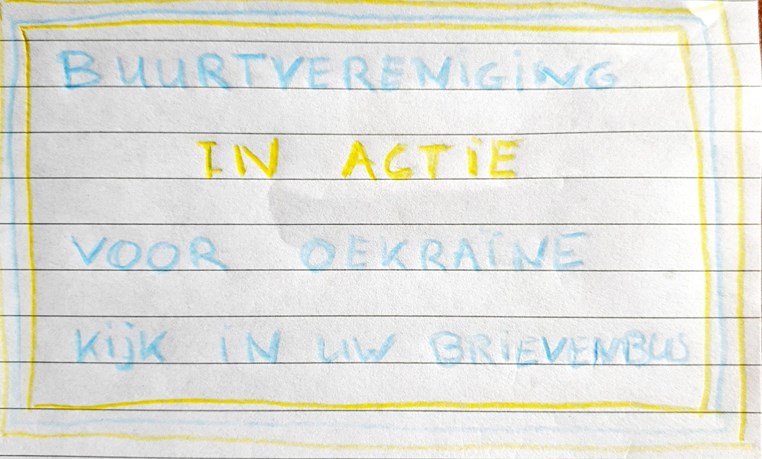 BUURTVERENIGING
IN ACTIE
VOOR OEKRAÏNE
KIJK IN UW BRIEVENBUS